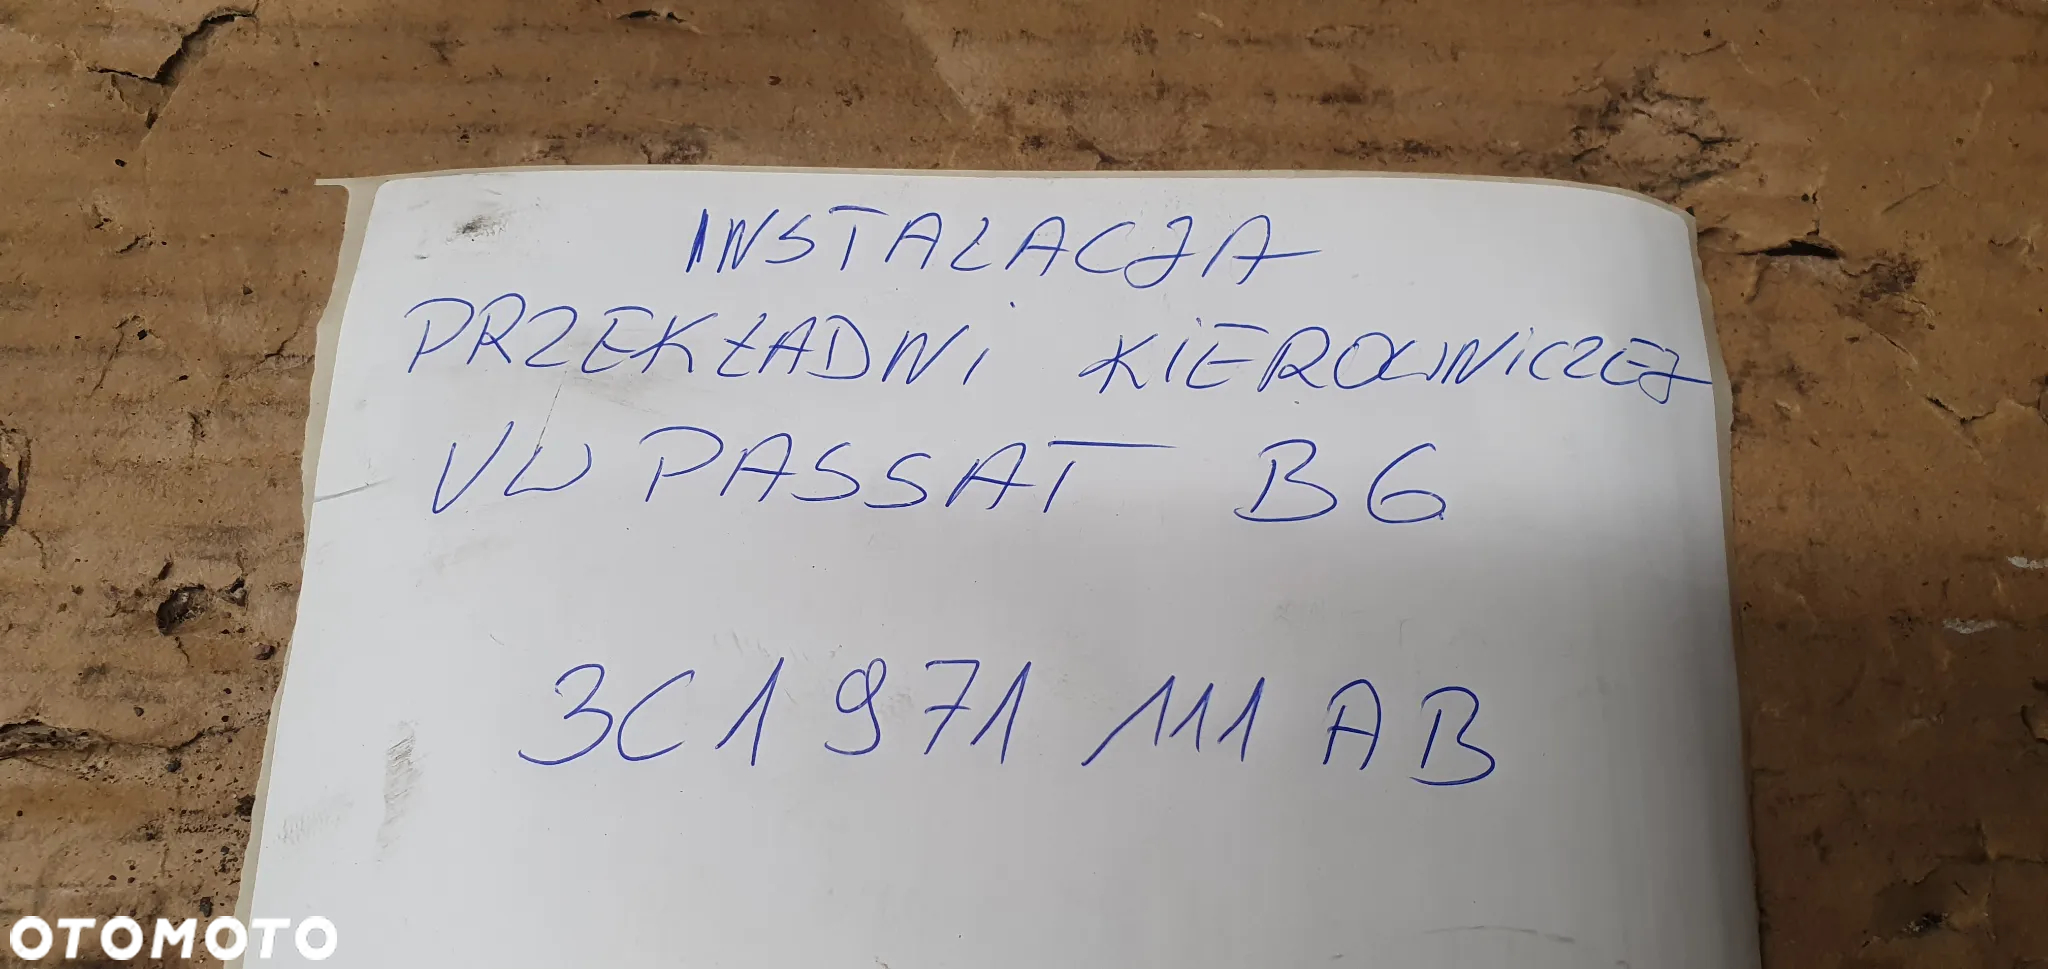 INSTALACJA
PRZEKŁADNi KiEROWNiCZEJ
VW PASSAT B6
3C1 971 111 AB
OTOMOTO